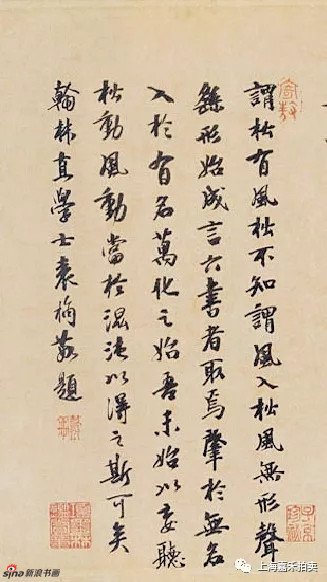 謂松有風松不知謂風入松風無形聲
無形始成言六書者取焉肇於無名
入於有名萬化之始吾未始以妄聽
松動風動當於混沌以得之斯可矣
翰林直學士袁桷敬題
sina新浪书画
上海嘉禾拍卖